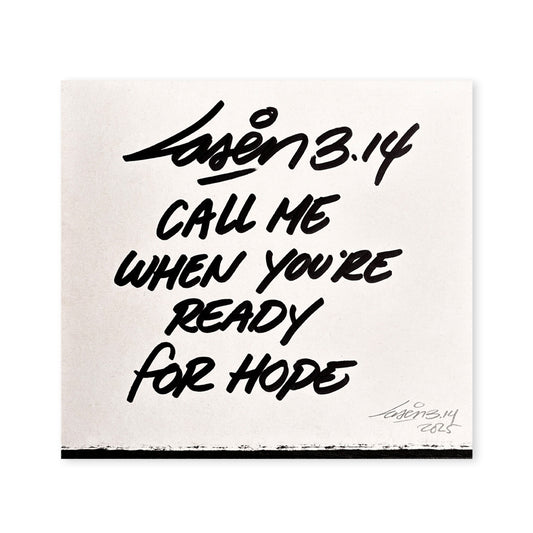 Laser 3.14
CALL ME
WHEN YOU'RE
READY
FOR HOPE
Laser 3.14
2025